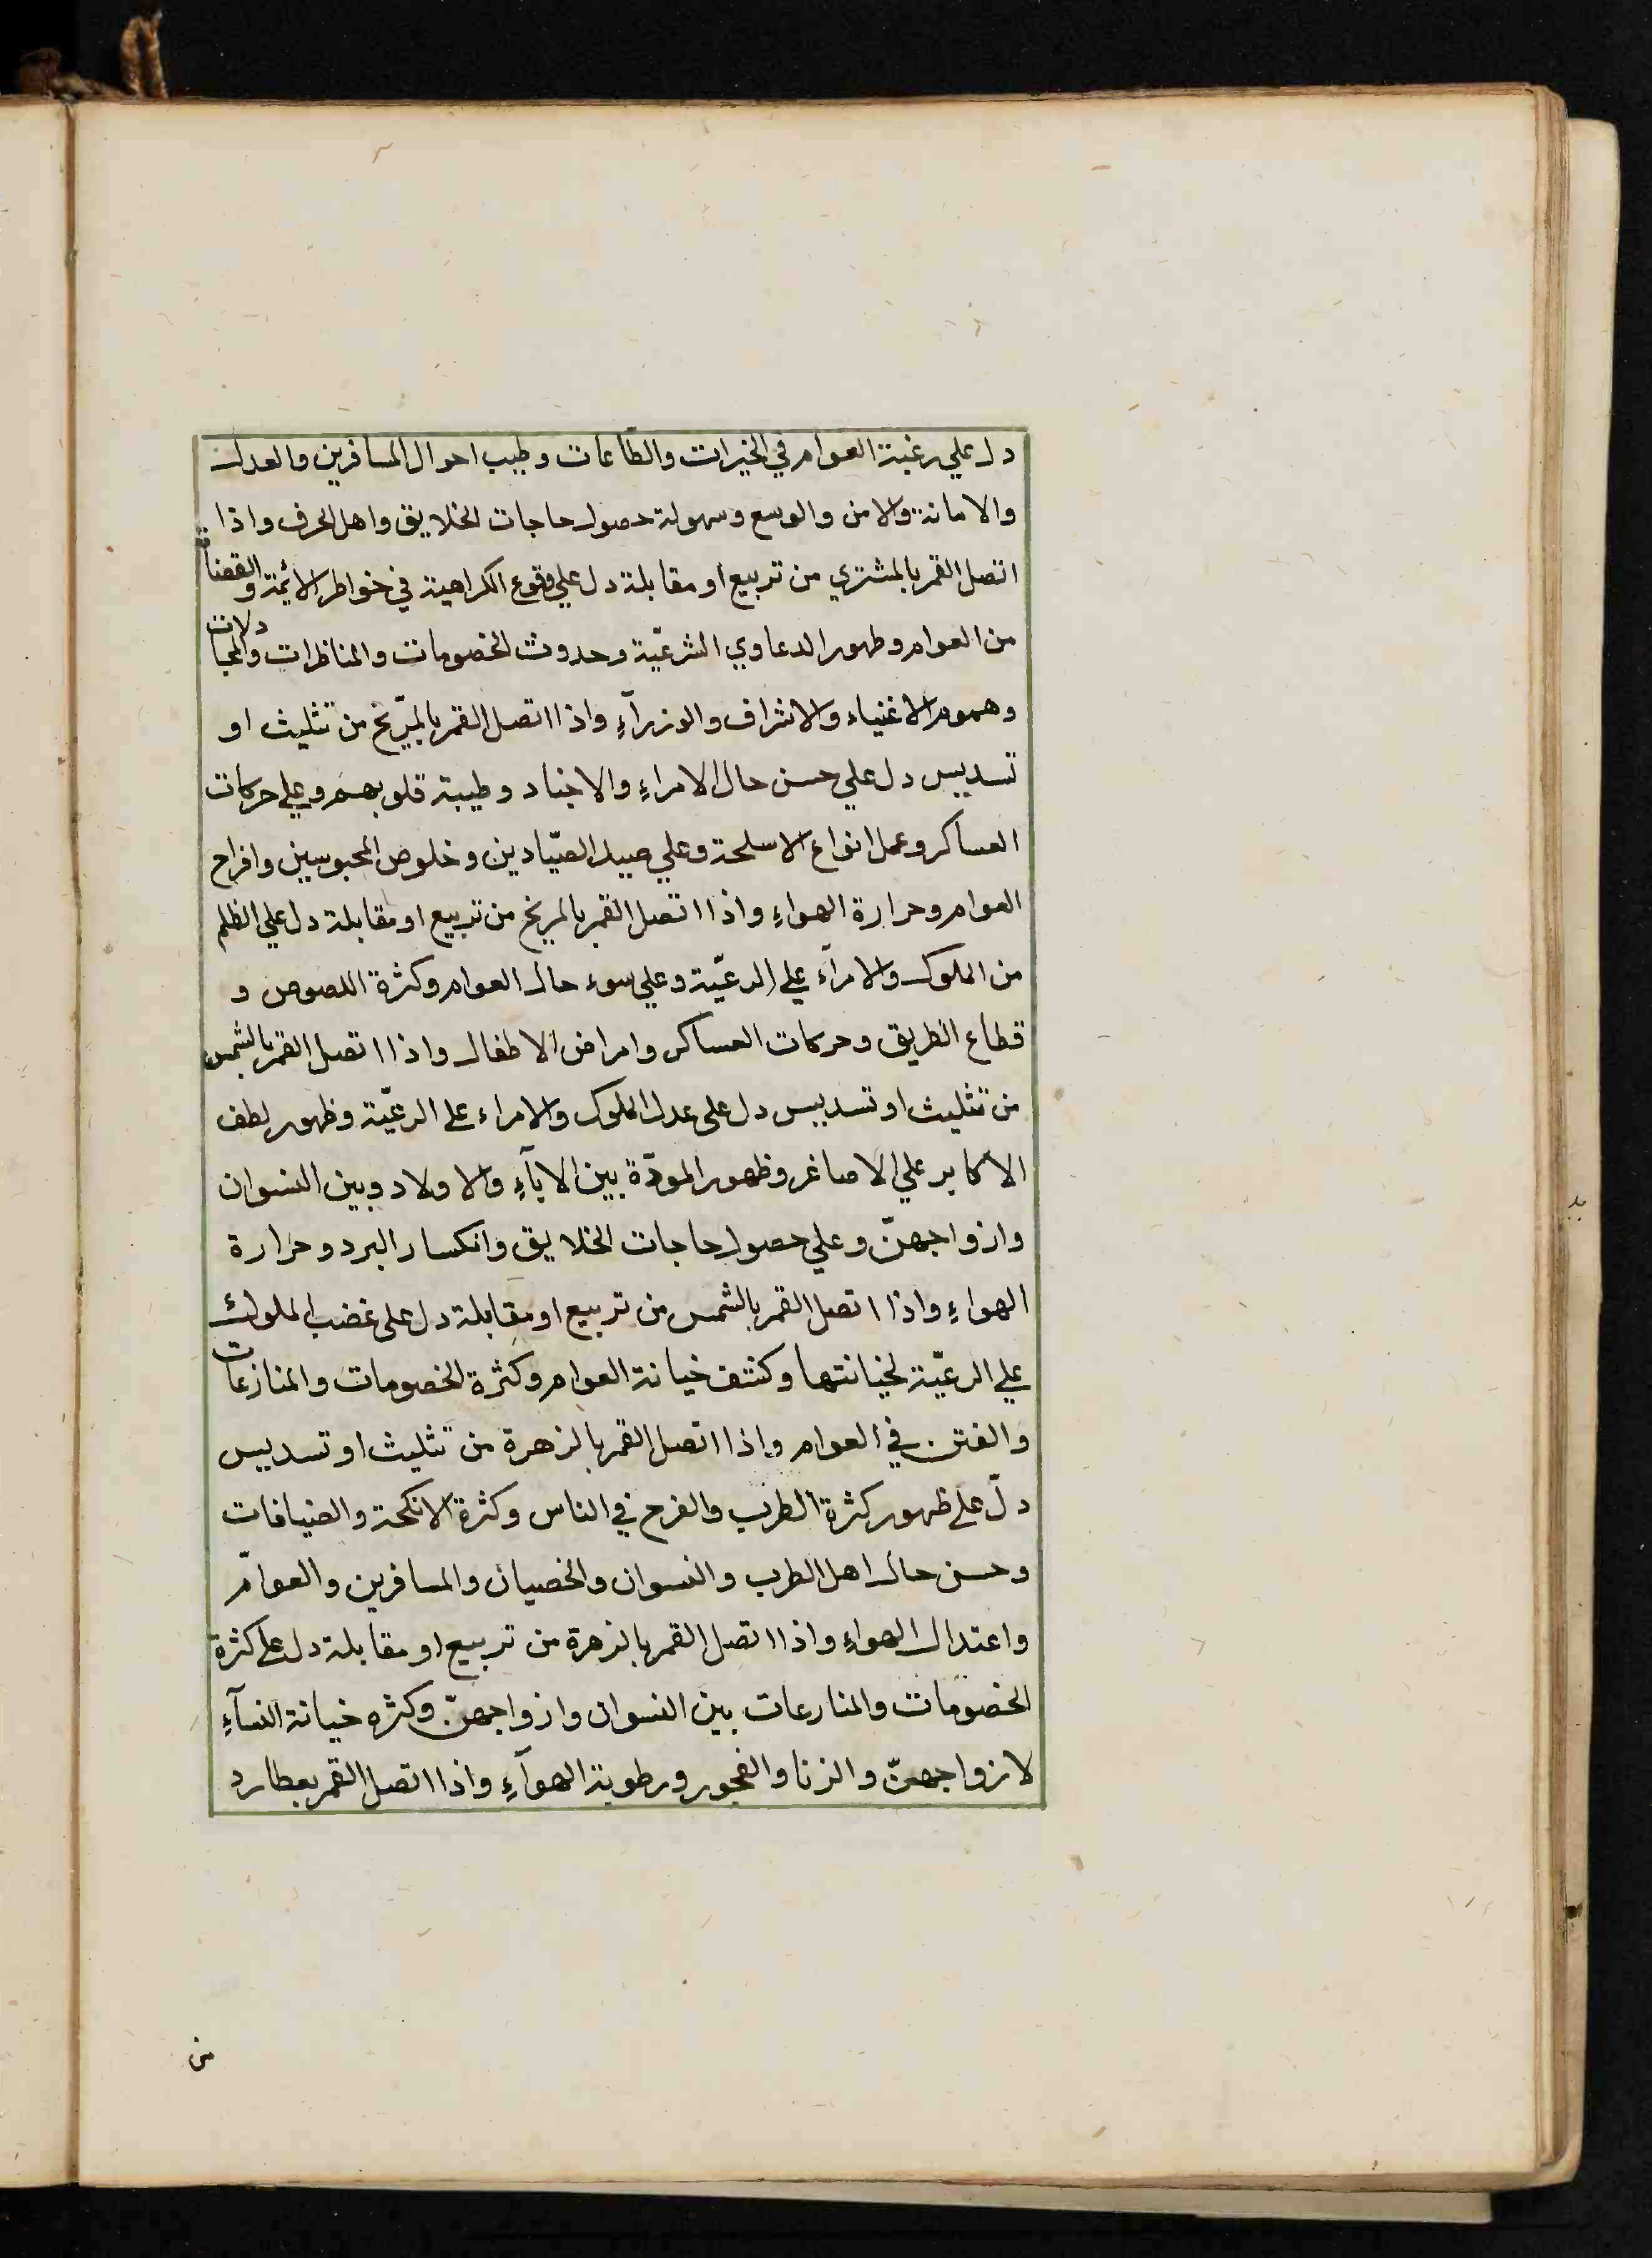 دل علي رغبة العوام في الخيرات والطاعات وطيب احوال المسافرين والعدل
والامانة والامن والوسع وسهولة حصول حاجات الخلايق واهل الحرف واذا
اتصل القمر بالمشتري من تربيع او مقابلة دل علي وقوع الكراهية في خواطر الائمة والقضاة
من العوام وظهور الدعاوي الشرعيّة وحدوث الخصومات والمناظرات والمجادلات
وهموم الاغنياء والاشراف والوزرآءِ واذا اتصل القمر بالمرّيخ من تثليث او
تسديس دل علي حسن حال الامراءِ والاجناد وطيبة قلوبهم وعلي حركات
العساكر وعمل انواع الاسلحة وعلي صيد الصيّادين وخلوص المحبوسين وافراح
العوام وحرارة الهواءِ واذا اتصل القمر بالمريخ من تربيع او مقابلة دل علي الظلم
من الملوك والامرآء علي الرعيّة وعلي سوء حال العوام وكثرة اللصوص و
قطاع الطريق وحركات العساكر وامراض الاطفال واذا اتصل القمر بالشمس
من تثليث او تسديس دل على عدل الملوك والامراء على الرعيّة وظهور لطف
الاكابر علي الاصاغر وظهور المودّة بين الابآءِ والاولاد وبين النسوان
وازواجهنّ وعلي حصول حاجات الخلايق وانكسار البرد وحرارة
الهواءِ واذا اتصل القمر بالشمس من تربيع او مقابلة دل على غضب الملوك
علي الرعيّة لخيانتها وكشف خيانة العوام وكثرة الخصومات والمنازعات
والفتن في العوام واذا اتصل القمر بالزهرة من تثليث او تسديس
دلّ على ظهور كثرة الطرب والفرح في الناس وكثرة الانكحة والضيافات
وحسن حال اهل الطرب والنسوان والخصيان والمسافرين والعوامّ
واعتدال الهواءِ واذا اتصل القمر بالزهرة من تربيع او مقابلة دل على كثرة
الخصومات والمنارعات بين النسوان وازواجهنّ وكثره خيانة النسآءِ
لازواجهنّ والزنا والفجور ورطوبة الهوآءِ واذا اتصل القمر بعطارد
من